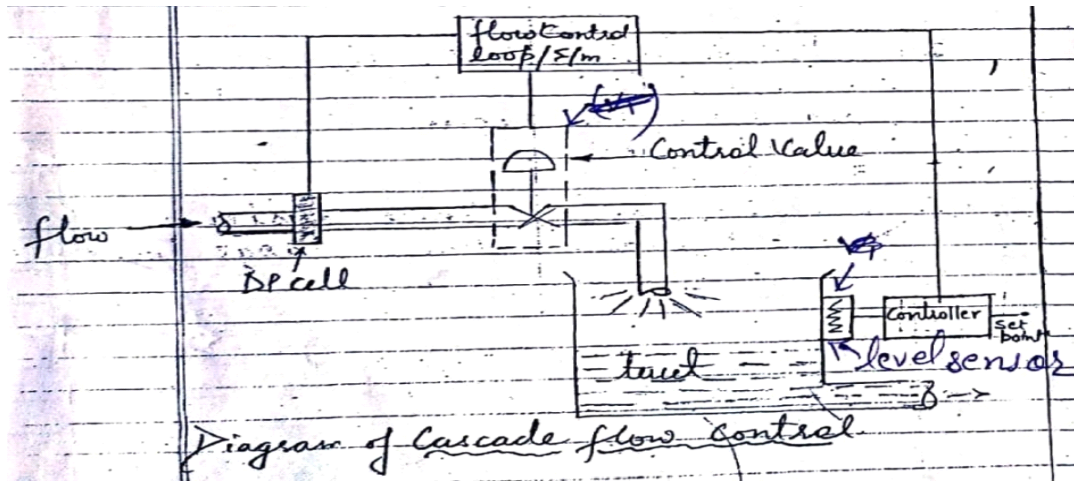 flow Control
loop/S/m
Control Value
flow
DP cell
Controller
set
point
level sensor
Diagram of Cascade flow control